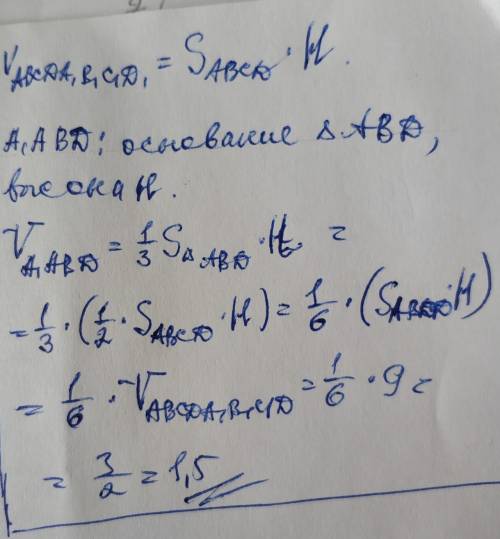 V_ABCDA₁B₁C₁D₁ = S_ABCD · H.
A₁ABD: основание △ABD,
высота H.
V_A₁ABD = 1/3 S_△ABD · H =
= 1/3 · (1/2 · S_ABCD · H) = 1/6 · (S_ABCD · H)
= 1/6 · V_ABCDA₁B₁C₁D = 1/6 · 9 =
= 3/2 = 1,5